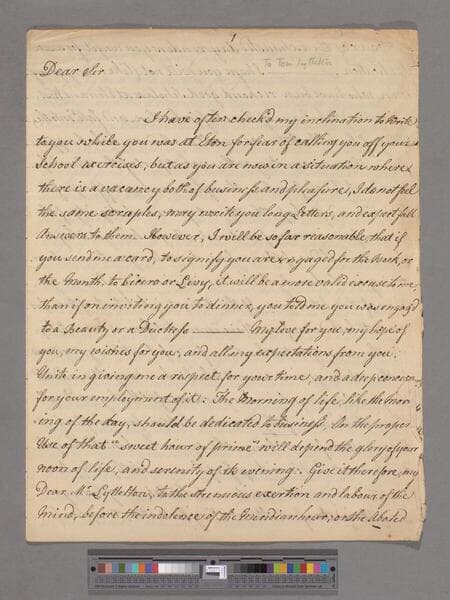 1
To Tom Lyttelton
Dear Sir
I have often check'd my inclination to Write
to you while you was at Eton for fear of calling you off your
School exercises, but as you are now in a situation where
there is a vacancy both of business and pleasure, I do not feel
the same scruples, may write you long Letters, and expect full
Answers to them. However, I will be so far reasonable, that if
you send me a card, to signify you are engaged for the Week, or
the Month, to Cicero or Livy, it will be a more valid excuse to me,
than if on inviting you to dinner, you told me you was engag'd
to a Beauty or a Dutchess ——— My love for you, my hope of
you, my wishes for you, and all my expectations from you,
Unite in giving me a respect for your time, and a deep concern
for your employment of it: The Morning of life, like the Mor-
ing of the day, should be dedicated to business, On the proper
Use of that "sweet hour of prime" will depend the glory of your
noon of life, and serenity of its evening: Give it therefore, my
Dear Mr. Lyttelton, to the strenuous exertion and labour of the
Mind, before the indolence of the Meridian hour, or the Abated